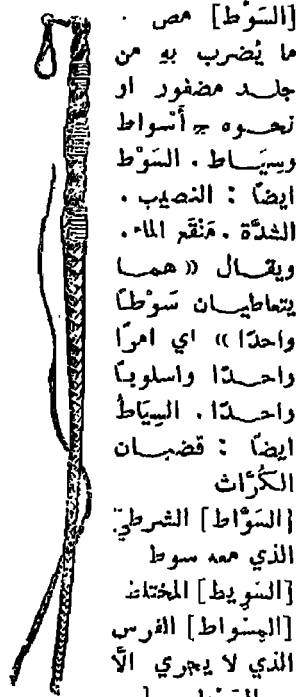 [السَوْط] مص .
ما يُضرب به من
جلــد مضفور او
نحــوه ج أَسْواط
وسِيَــاط . السَوْط
ايضًا : النصيب .
الشدَّة . مَنْقَع الماء .
ويقــال « همــا
يتعاطيــان سَوْطًــا
واحدًا » اي امرًا
واحــدًا واسلوبــًا
واحــدًا . السِيَاطُ
ايضًا : قضبــان
الكُرَّاث
[السَوَّاط] الشرطيّ
الذي معه سوط
[السَوِيط] المختلط
[المِسْواط] الفرس
الذي لا يجري الَّا